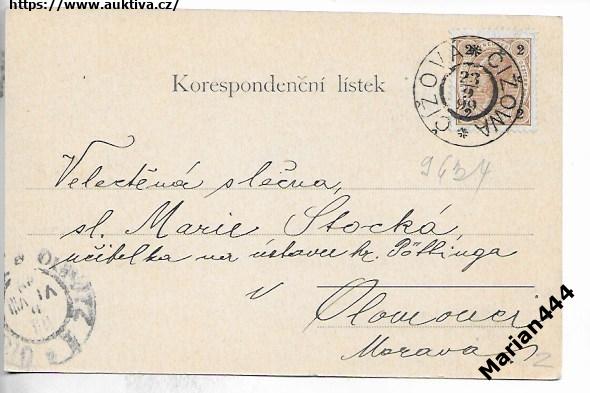 https://www.auktiva.cz/
Korespondenční lístek
2 2
2
ČÍŽOVA * ČIŽOWA *
23
9
99
9634
Velectěná slečna,
sl. Marie Stocká,
učitelka na ústavu hr. Pöttinga
v Olomouci
Morava
OLMÜTZ
Marian444
2